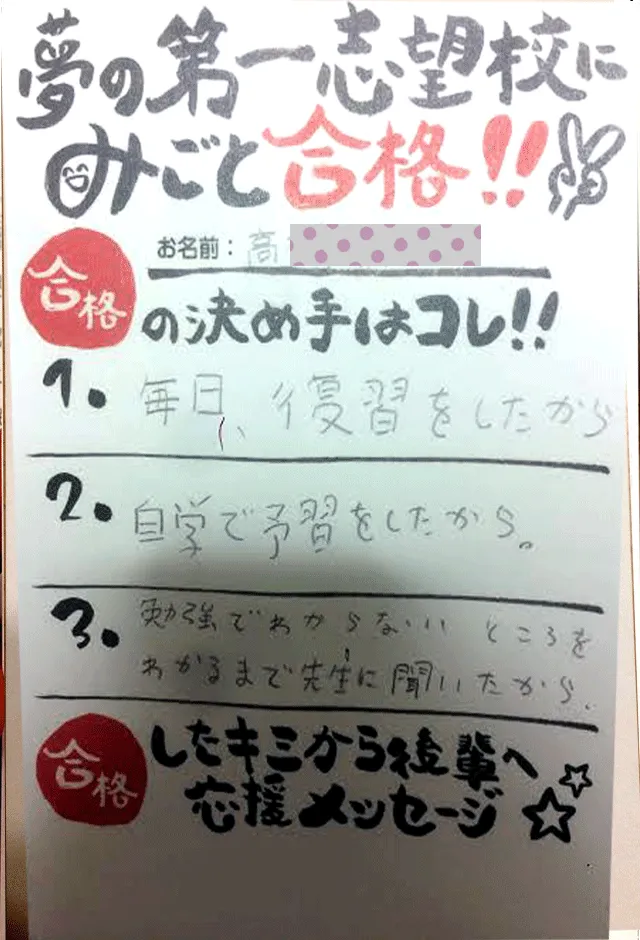 夢の第一志望校に
みごと合格!!
お名前：高
合格
の決め手はコレ!!
1. 毎日、復習をしたから
2. 自学で予習をしたから。
3. 勉強でわからないところを
わかるまで先生に聞いたから.
合格
したキミから後輩へ
応援メッセージ